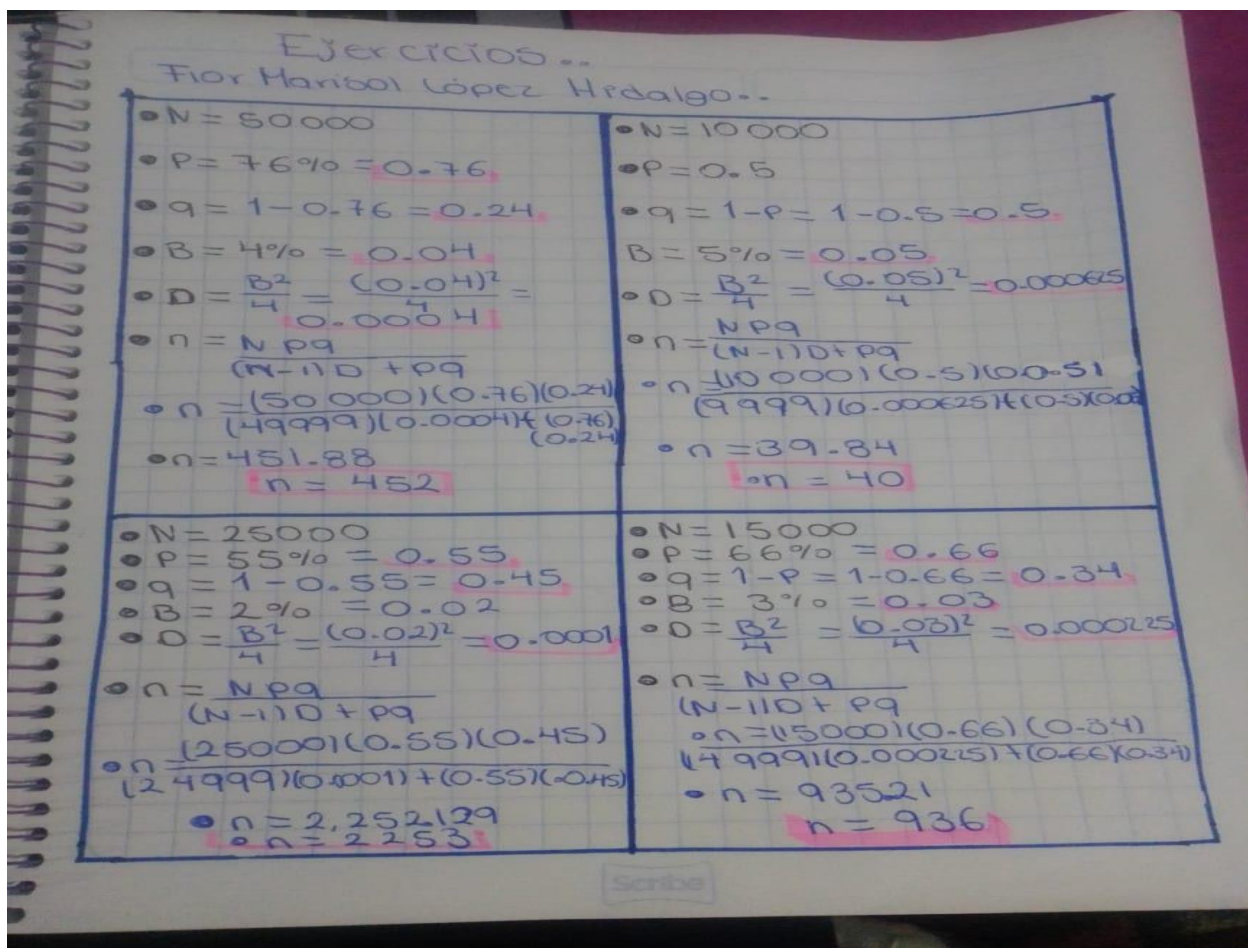 Ejercicios..
Flor Marisol López Hidalgo..
• N = 50000
• P = 76% = 0.76
• q = 1 - 0.76 = 0.24
• B = 4% = 0.04
• D = B²/4 = (0.04)²/4 =
0.0004
• n = Npq/(N-1)D + pq
• n = (50000)(0.76)(0.24)/(49999)(0.0004)+(0.76)
(0.24)
• n = 451.88
n = 452
• N = 10000
• P = 0.5
• q = 1-P = 1-0.5 = 0.5
B = 5% = 0.05
• D = B²/4 = (0.05)²/4 = 0.000625
• n = Npq/(N-1)D + pq
• n = (10000)(0.5)(00.5)/(9999)(0.000625)+(0.5)(0.05)
• n = 39.84
• n = 40
• N = 25000
• P = 55% = 0.55
• q = 1 - 0.55 = 0.45
• B = 2% = 0.02
• D = B²/4 = (0.02)²/4 = 0.0001
• n = Npq/(N-1)D + pq
• n = (25000)(0.55)(0.45)/(24999)(0.0001) + (0.55)(0.45)
• n = 2,252129
• n = 2253
• N = 15000
• P = 66% = 0.66
• q = 1-P = 1-0.66 = 0.34
• B = 3% = 0.03
• D = B²/4 = (0.03)²/4 = 0.000225
• n = Npq/(N-1)D + pq
• n = (15000)(0.66)(0.34)/(14999)(0.000225)+(0.66)(0.34)
• n = 93521
n = 936
Scribe